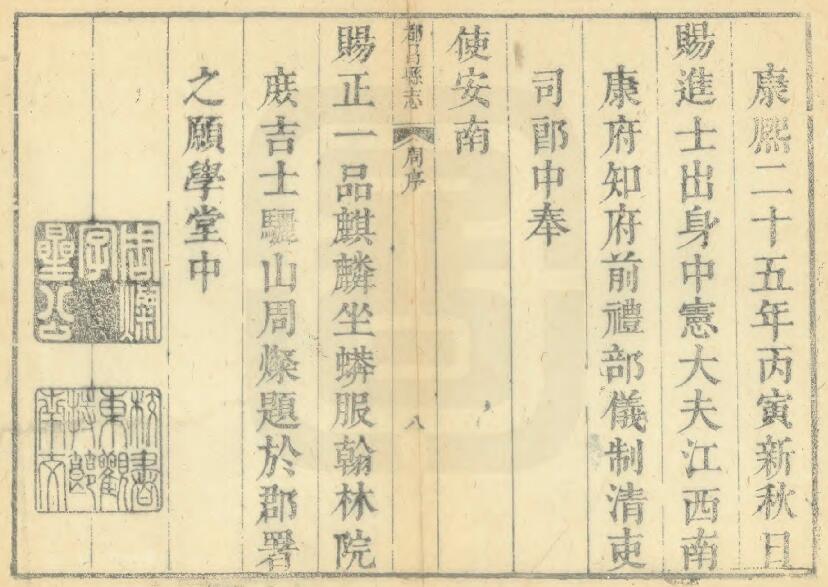 康熙二十五年丙寅新秋日
賜進士出身中憲大夫江西南
康府知府前禮部儀制清吏
司郎中奉
使安南
都昌縣志
周序
八
賜正一品麒麟坐蟒服翰林院
庶吉士驪山周燦題於郡署
之願學堂中
周燦
字
星公
校書
東觀
持節
南交